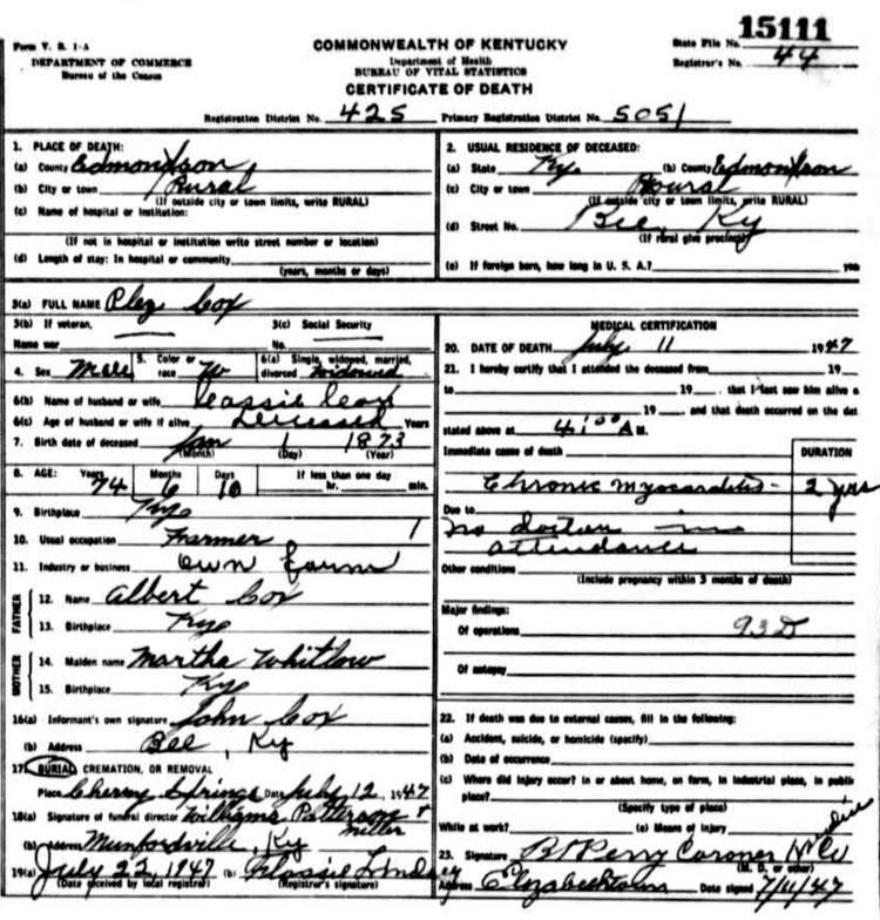 15111
Form V. S. 1-A
COMMONWEALTH OF KENTUCKY
State File No.
DEPARTMENT OF COMMERCE
Bureau of the Census
Department of Health
BUREAU OF VITAL STATISTICS
Registrar's No. 44
CERTIFICATE OF DEATH
Registration District No. 425 Primary Registration District No. 5051
1. PLACE OF DEATH:
(a) County Edmondson
(b) City or town Rural
(If outside city or town limits, write RURAL)
(c) Name of hospital or institution:
(If not in hospital or institution write street number or location)
(d) Length of stay: In hospital or community
(years, months or days)
2. USUAL RESIDENCE OF DECEASED:
(a) State Ky. (b) County Edmondson
(c) City or town Rural
(If outside city or town limits, write RURAL)
(d) Street No. Bee, Ky
(If rural give precinct)
(e) If foreign born, how long in U. S. A.?
3(a) FULL NAME Plez Cox
3(b) If veteran,
Name war
3(c) Social Security
No.
4. Sex Male 5. Color or race W 6(a) Single, widowed, married, divorced Widowed
6(b) Name of husband or wife
6(c) Age of husband or wife if alive Deceased Years
7. Birth date of deceased Jan 1 1873
(Month) (Day) (Year)
8. AGE: Years 74 Months 6 Days 10 If less than one day
hr. min.
9. Birthplace Ky
10. Usual occupation Farmer
11. Industry or business Own farm
FATHER
12. Name Albert Cox
13. Birthplace Ky
MOTHER
14. Maiden name Martha Whitlow
15. Birthplace Ky
16(a) Informant's own signature John Cox
(b) Address Bee, Ky
17. BURIAL, CREMATION, OR REMOVAL
Place Cherry Springs Date July 12, 1947
18(a) Signature of funeral director Williams Patterson + Miller
(b) Address Munfordville, Ky
19(a) July 22, 1947 (b) Lindsey
(Date received by local registrar) (Registrar's signature)
MEDICAL CERTIFICATION
20. DATE OF DEATH July 11 1947
21. I hereby certify that I attended the deceased from 19
to 19 , that I last saw him alive
19 , and that death occurred on the dat
stated above at 4:00 A M.
Immediate cause of death
DURATION
Chronic myocarditis - 2 yrs
Due to
no doctor in
attendance
Other conditions
(Include pregnancy within 3 months of death)
Major findings:
Of operations 93D
Of autopsy
22. If death was due to external causes, fill in the following:
(a) Accident, suicide, or homicide (specify)
(b) Date of occurrence
(c) Where did injury occur? In or about home, on farm, in industrial place, in public
place?
(Specify type of place)
While at work? (e) Means of injury
23. Signature Perry Coroner
(M. D. or other)
Address Elizabethtown Date signed 7/11/47